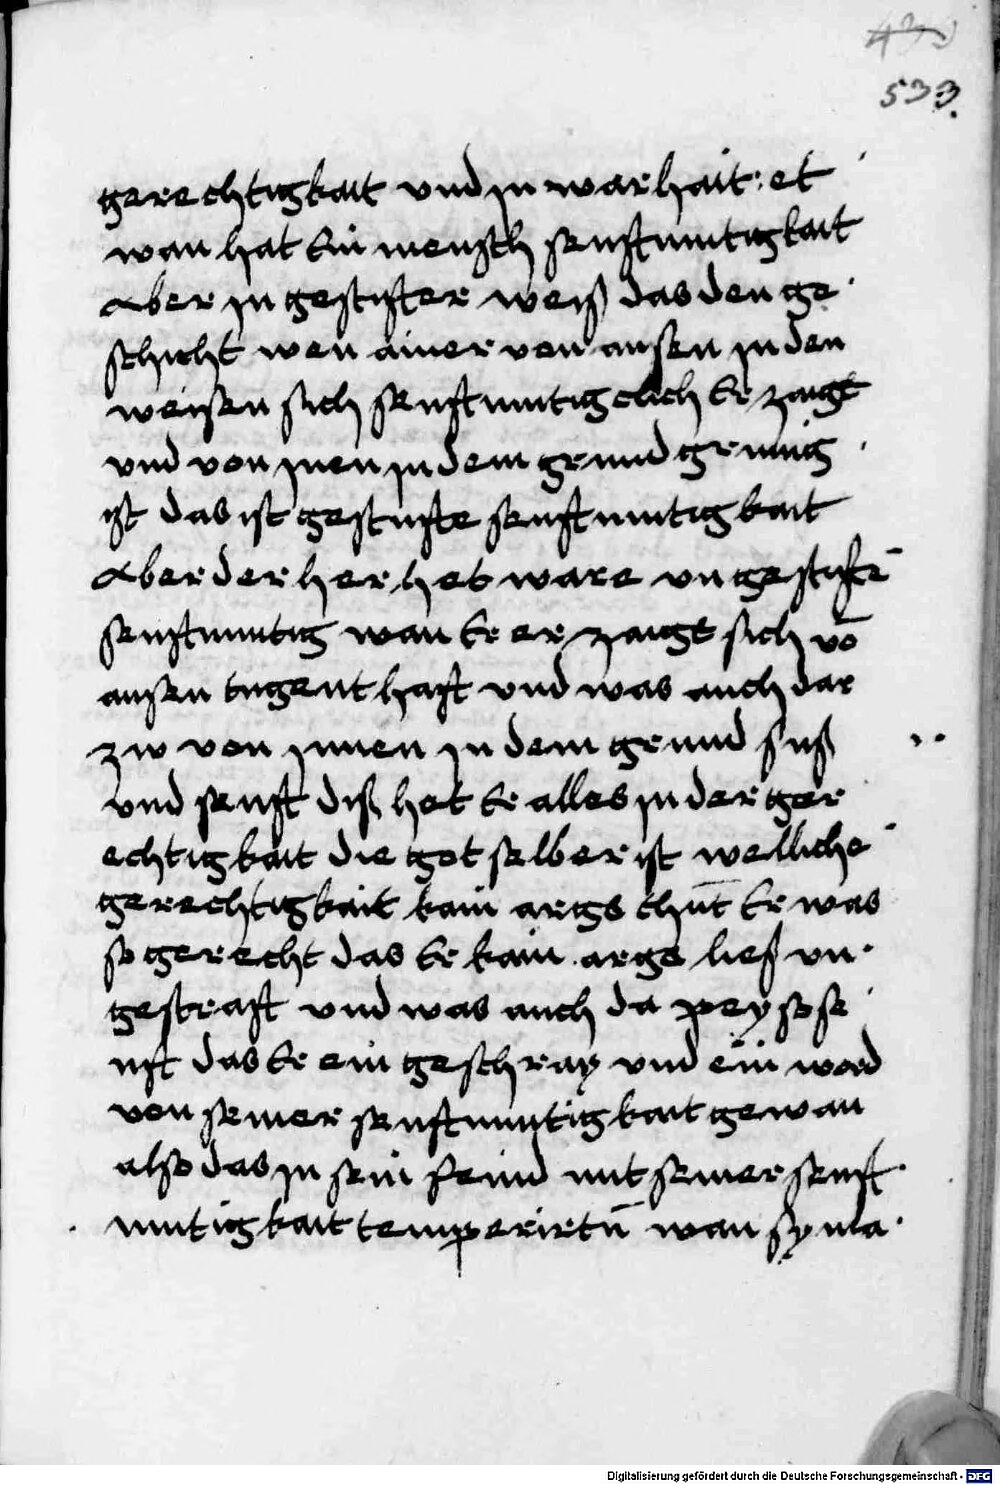 439
533.
gerechtigkait vnd in warhait: et
wan hat Ein mensch senftmutigkait
Aber in gestifter weiß das den ge
schicht wen ainer von ausen in den
weisen sich senftmutigclich Er zaigt
vnd von inen in dem grund grimig
ist das ist gestifte senftmutigkait
Aber der her het ware vngestiftē
senftmutig wan Er er zaigt sich võ
ausen tugenthaft vnd was auch dar
zw von innen in dem grund suß
vnd senft diß het Er alles in der ger
echtigkait die got selber ist welliche
gerechtigkait kain args thut Er was
so gerecht das Er kain args ließ vn
gestraft vnd was auch da pey so se
nft das Er ein geschray vnd ein word
von seiner senftmutigkait gewan
also das in sein feind mit seiner senft
mutigkait temperirtn̄ wan sy ma
Digitalisierung gefördert durch die Deutsche Forschungsgemeinschaft - DFG